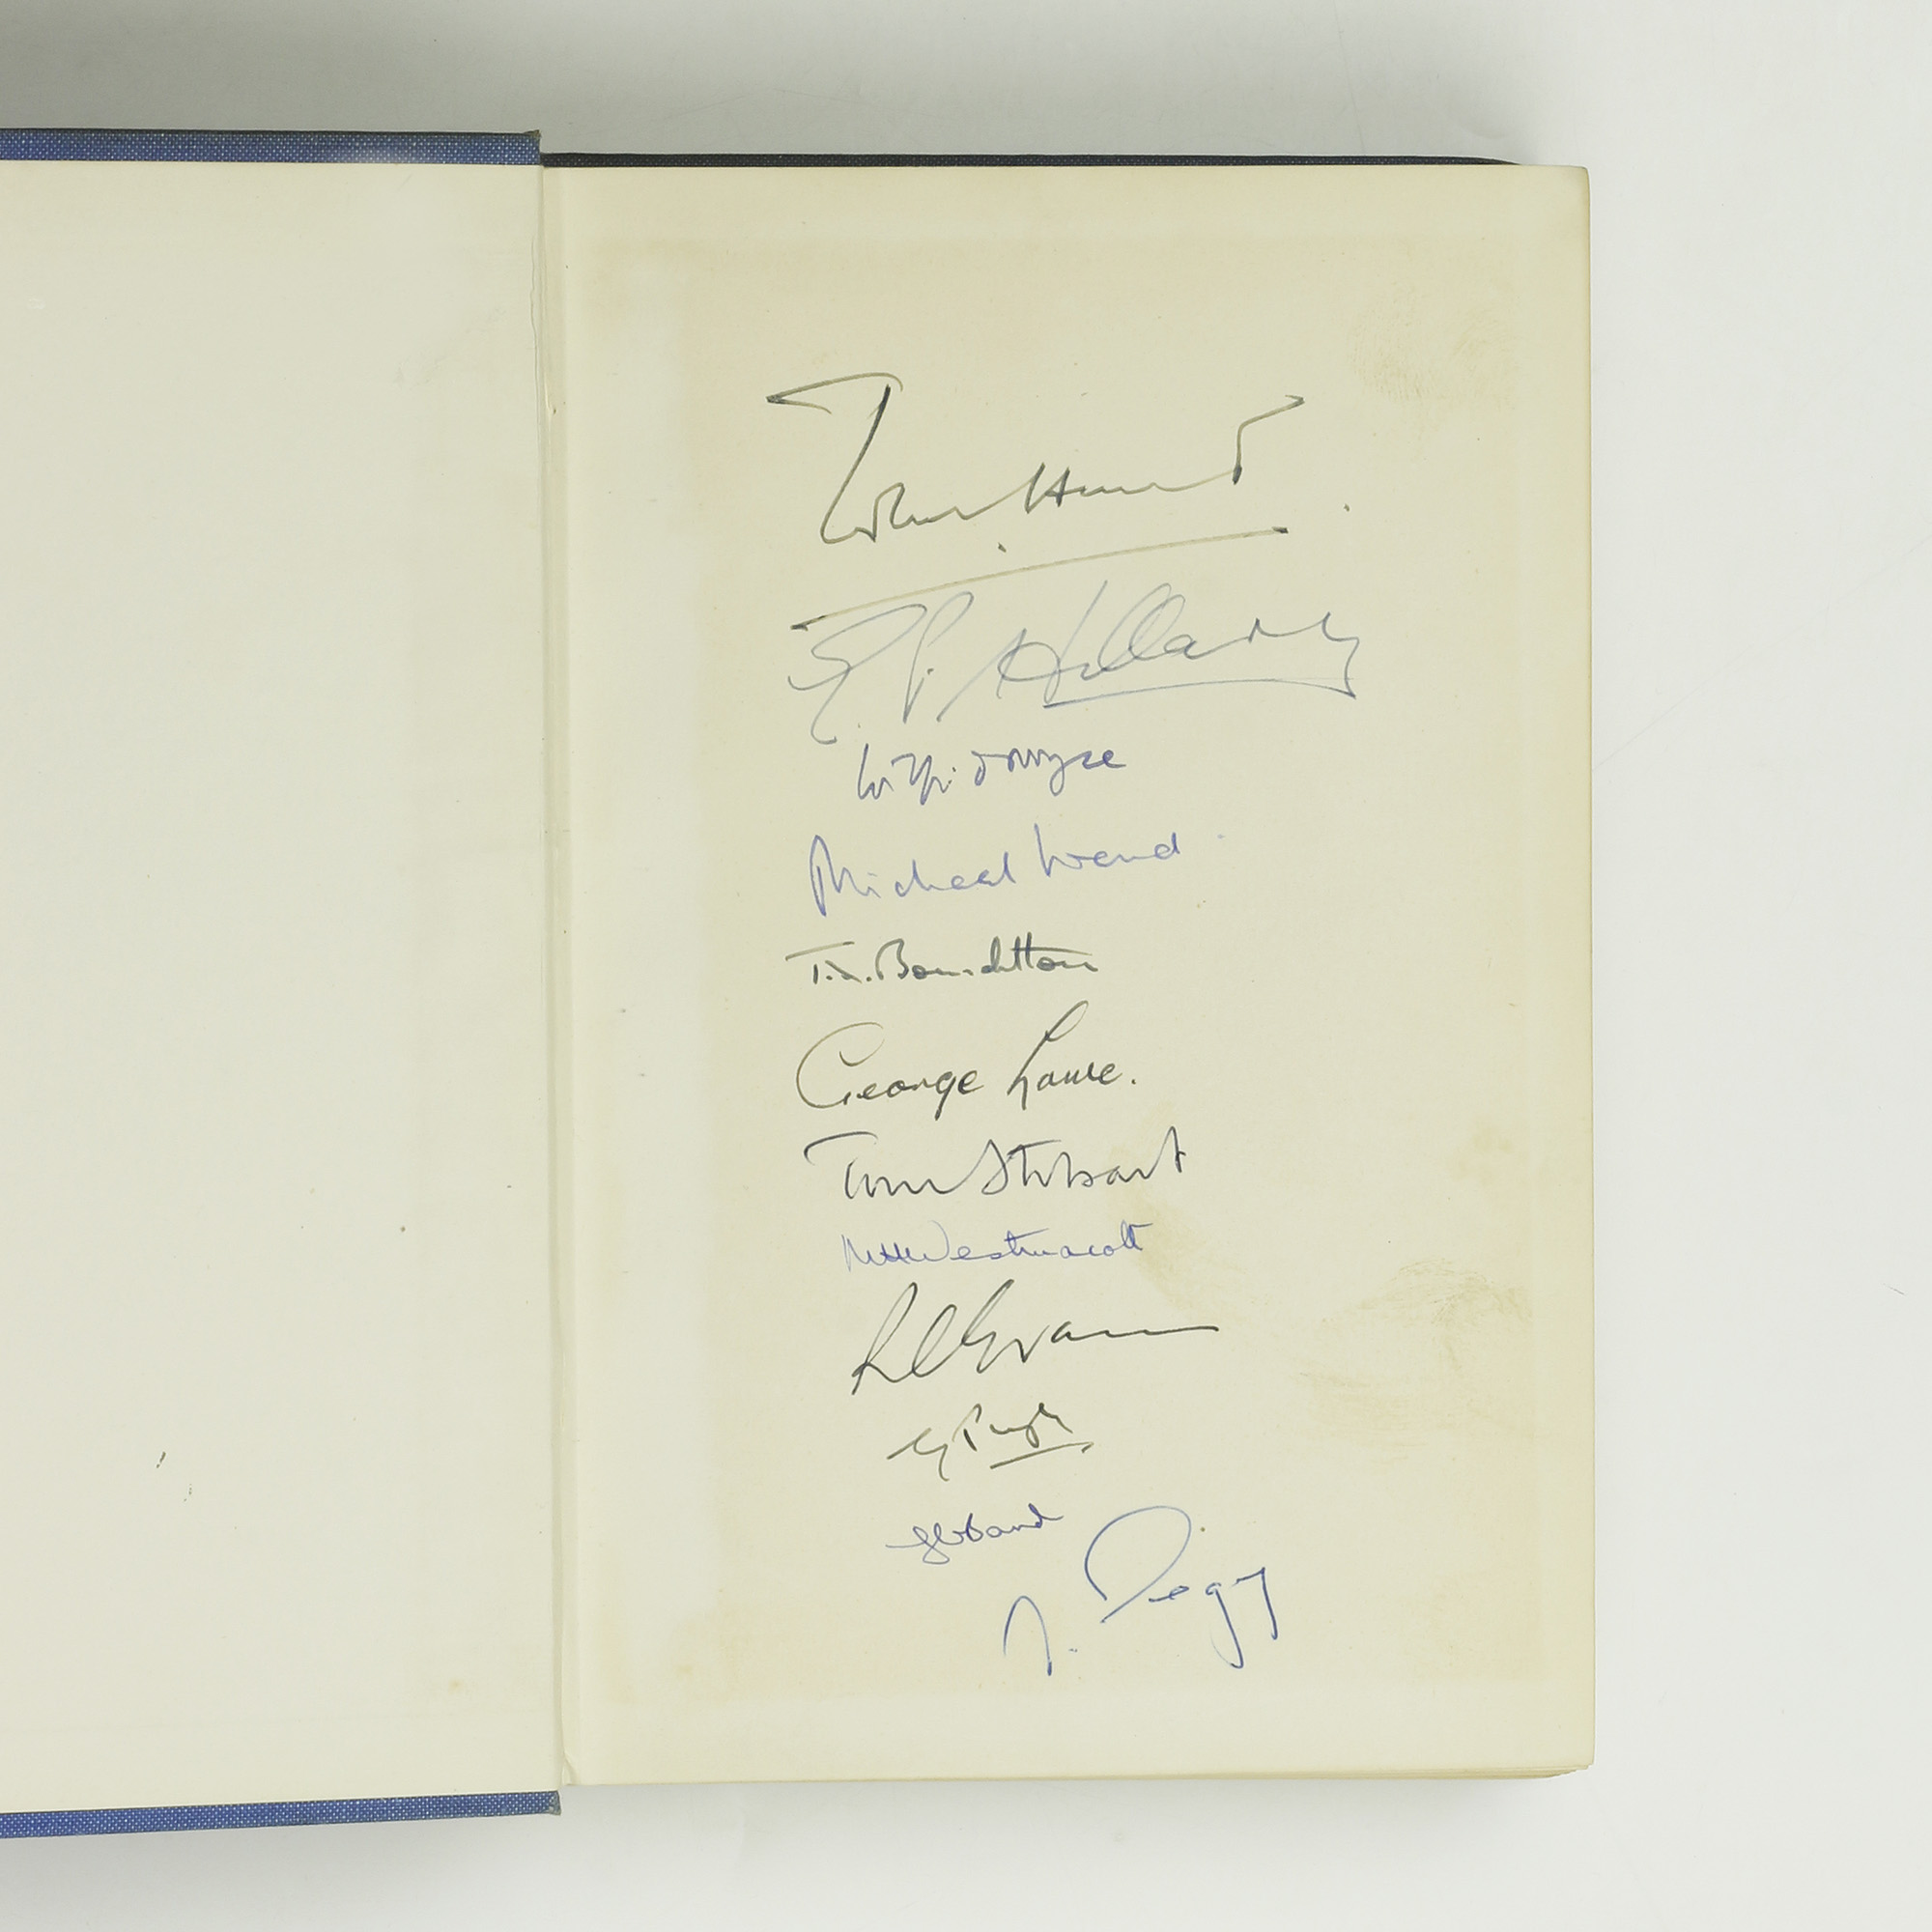 John Hunt
E. P. Hillary
Wilfrid Noyce
Michael Ward
T. D. Bourdillon
George Lowe.
Tom Stobart
MHWestmacott
RCEvans
G Pugh
GCBand
A. Gregory